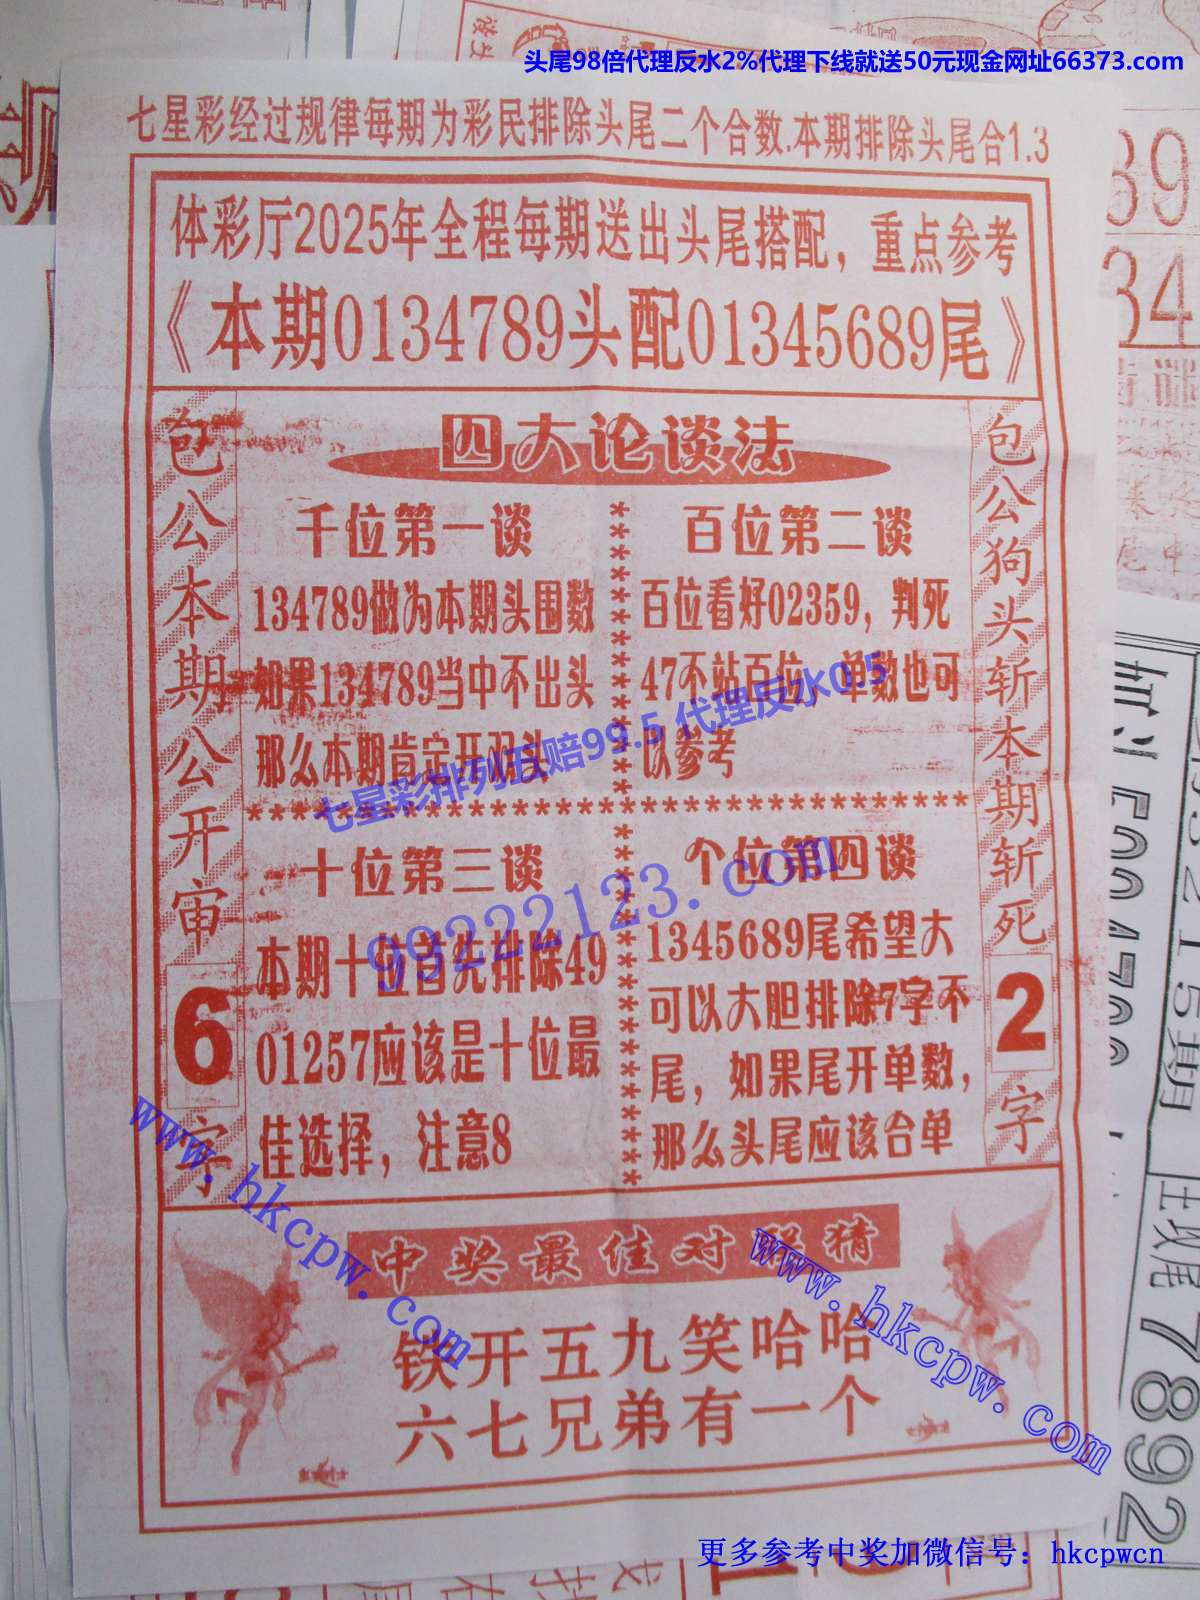 头尾98倍代理反水2%代理下线就送50元现金网址66373.com
七星彩经过规律每期为彩民排除头尾二个合数.本期排除头尾合1.3
体彩厅2025年全程每期送出头尾搭配，重点参考
《本期0134789头配01345689尾》
四大论谈法
包公本期公开审6字
千位第一谈
134789做为本期头围数
如果134789当中不出头
那么本期肯定开双头
百位第二谈
百位看好02359，判死
47不站百位，单数也可
以参考
七星彩排列五赔99.5 代理反水0.5
99222123.com
十位第三谈
本期十位首先排除49
01257应该是十位最
佳选择，注意8
个位第四谈
1345689尾希望大
可以大胆排除7字不
尾，如果尾开单数，
那么头尾应该合单
包公狗头斩本期斩死2字
www.hkcpw.com
www.hkcpw.com
中奖最佳对联猜
铁开五九笑哈哈
六七兄弟有一个
39
34
215期
尾7892
更多参考中奖加微信号：hkcpwcn